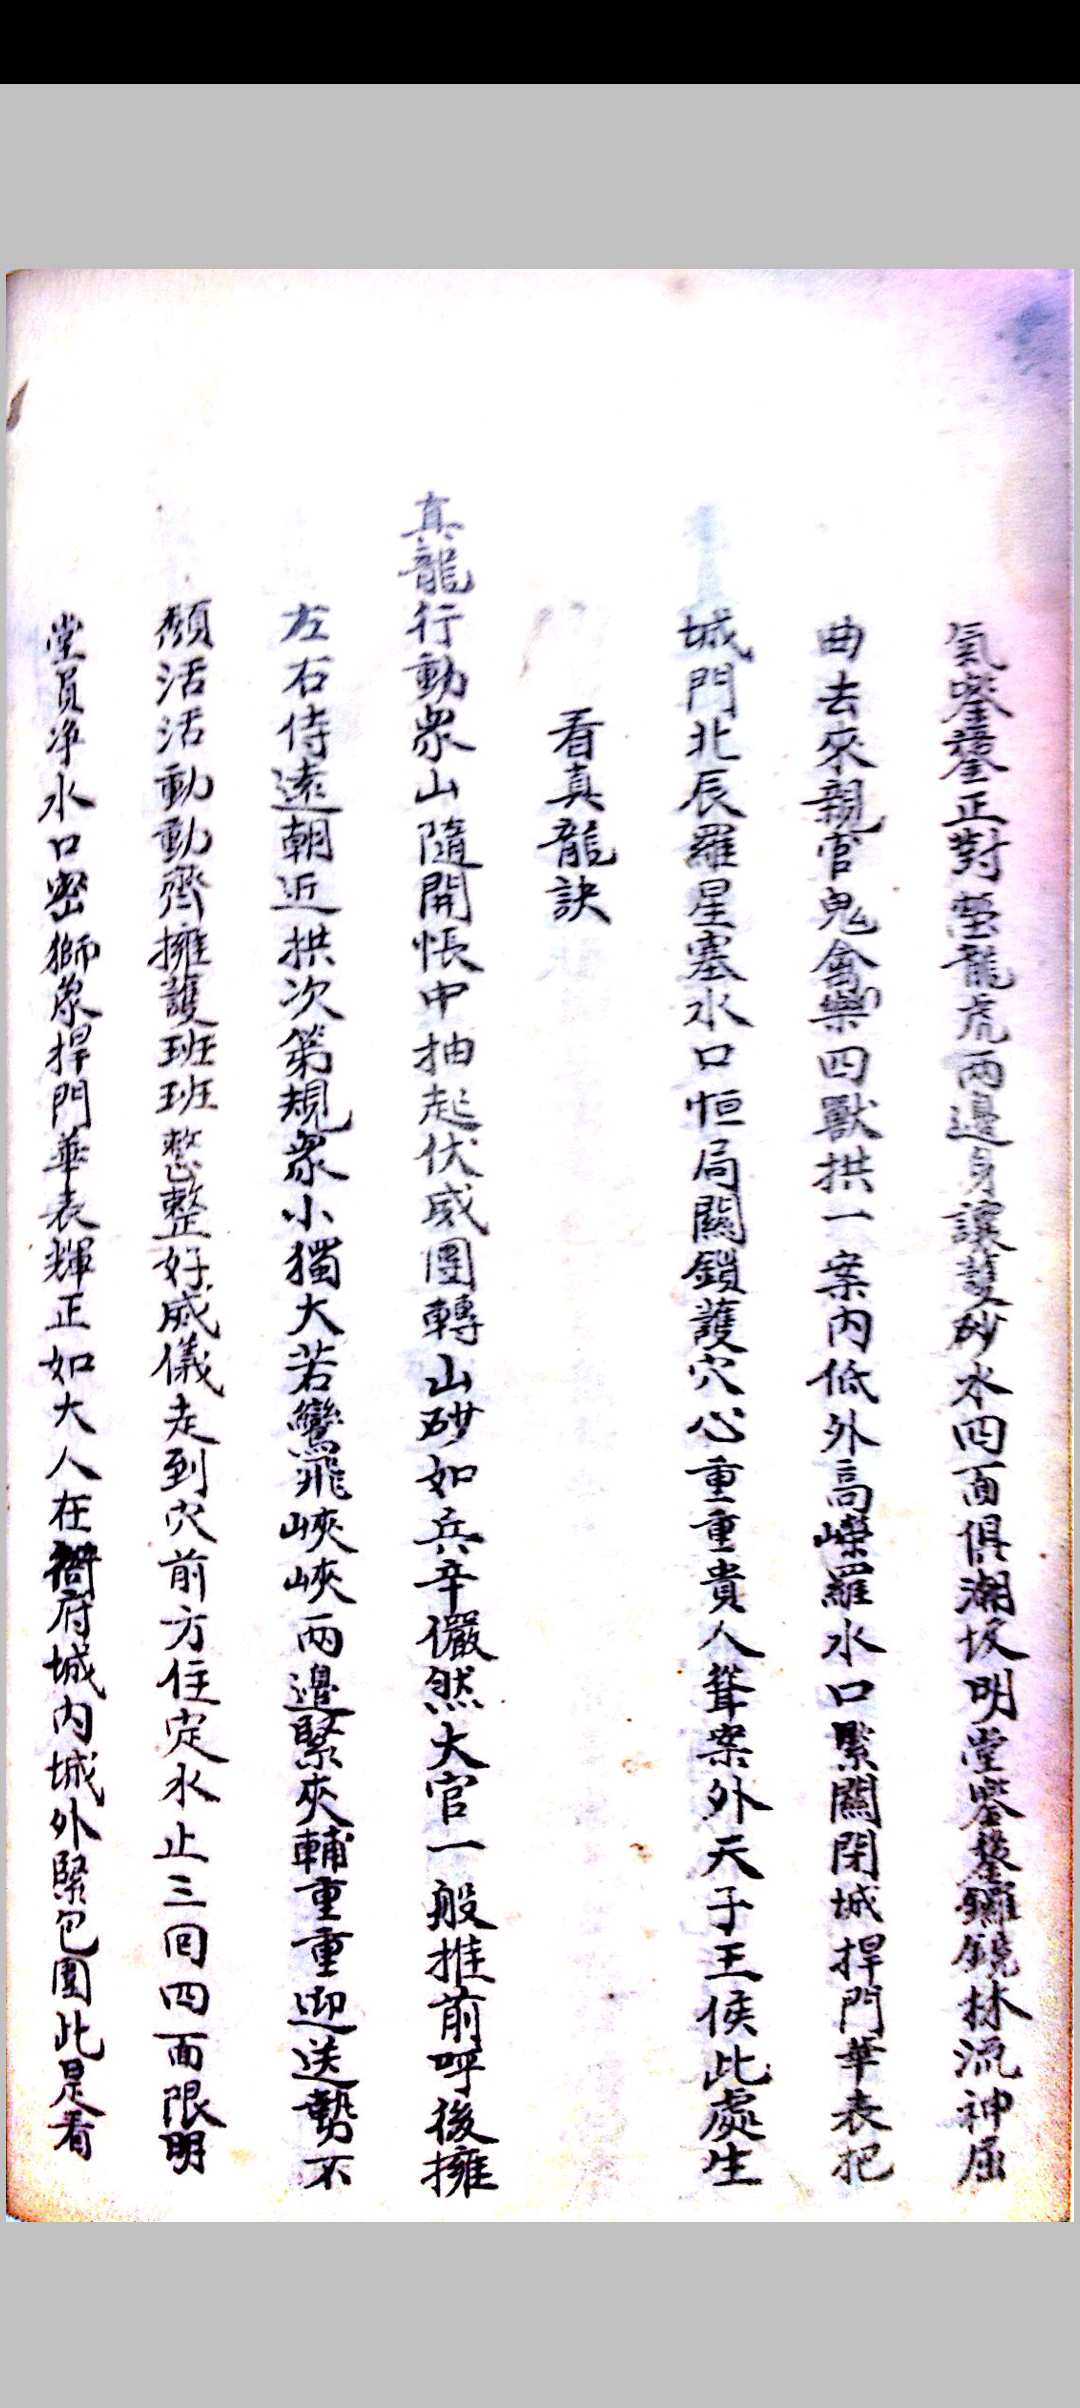 氣壑鏊正對塋龍虎兩邊身讓護砂水四面俱潮坂明堂鏊鏊鑼鏡林流神屈
曲去來親官鬼禽樂四獸拱一案內低外高嶸羅水口緊關閉城捍門華表把
城門北辰羅星塞水口恒局關鎖護穴心重重貴人聳案外天子王侯此處生
看真龍訣
真龍行動眾山隨開悵中抽起伏威團轉山砂如兵卒儼然大官一般推前呼後擁
左右侍遠朝近拱次第規眾小獨大若鸞飛峽峽兩邊緊夾輔重重迎送勢不
頹活活動動齊擁護班班整整好威儀走到穴前方住定水止三回四面限明
堂員净水口密獅象捍門華表輝正如大人在衙府城內城外緊包圍此是看